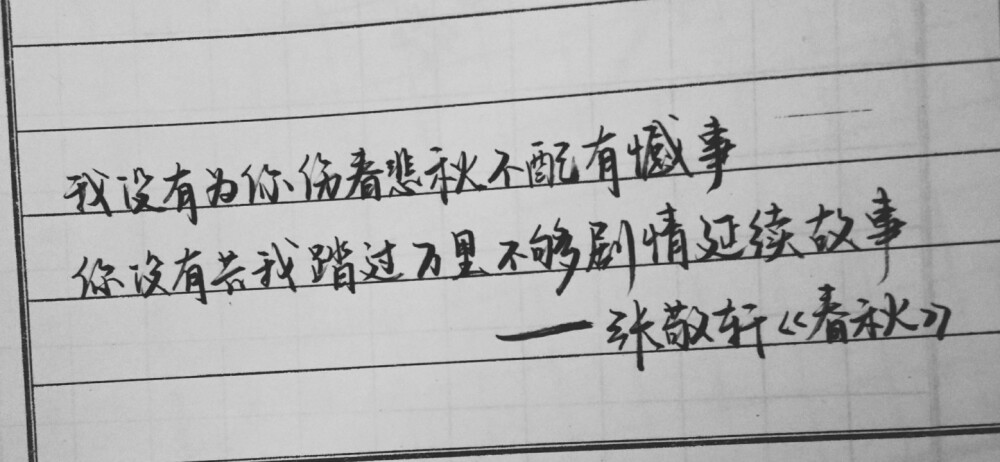 我没有为你伤春悲秋不配有憾事
你没有共我踏过万里不够剧情延续故事
——张敬轩《春秋》